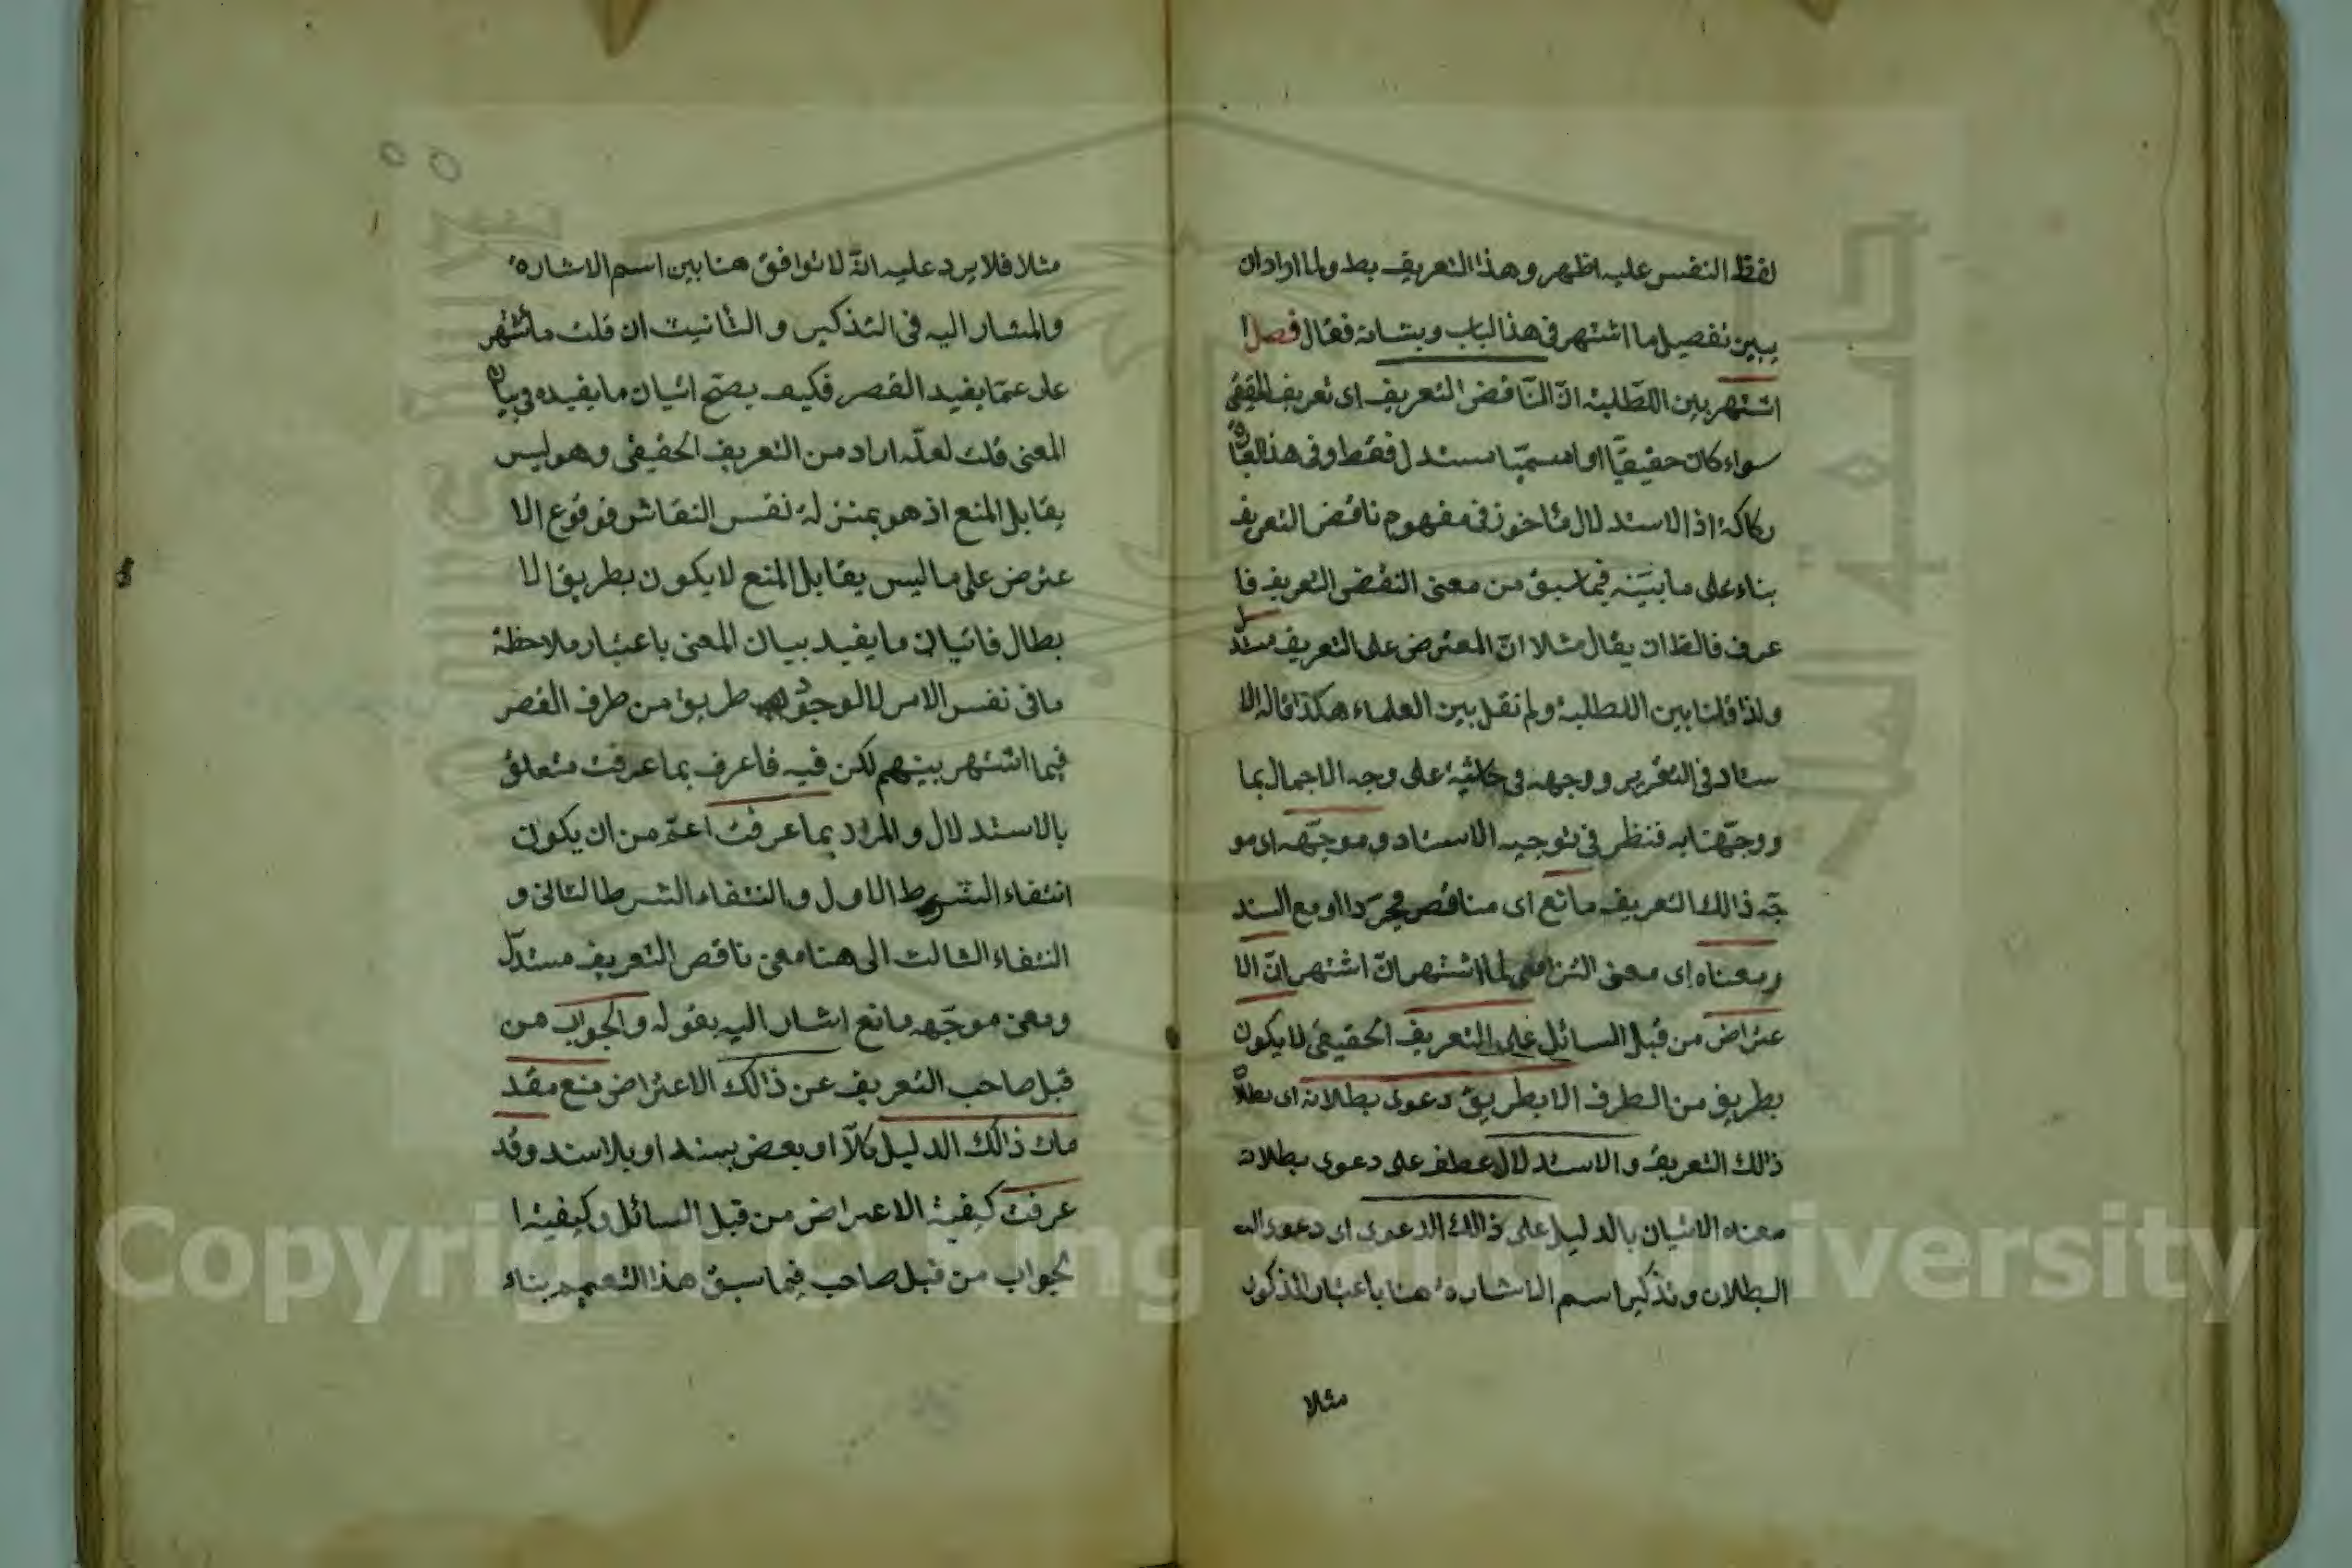 لفظ النفس عليه اظهر وهذا التعريف بط ولما اراد ان
يبين تفصيل ما اشتهر فى هذا الباب وبشانه فقال فصل ا
اشتهر بين الطلبة انّ الناقض التعريف اى تعريف الحقيقى
سواء كان حقيقيّا او اسميّا مستدل فقط وفى هذا القول
ركاكة اذ الاستدلال مأخوذ فى مفهوم ناقض التعريف
بناء على ما بيّنه فيما سبق من معنى النقض التعريف فا
عرف فالظ ان يقال مثلا انّ المعترض على التعريف مستدل
ولذا قلنا بين الطلبة ولم نقل بين العلماء هكذا قاله الا
ستاد فى التقرير ووجهه فى حاشية على وجه الاجمال بما
ووجّهنا به فنظر فى توجيه الاستاد وموجّهه اى مو
جّه ذالك التعريف مانع اى مناقض مجرّدا او مع السند
ومعناه اى معنى التزامى لما اشتهر انّ اشتهر انّ الا
عتراض من قبل السائل على التعريف الحقيقى لا يكون
بطريق من الطرف الا بطريق دعوى بطلانه اى بطلان
ذالك التعريف والاستدلال عطف على دعوى بطلانه
معناه الاتيان بالدليل على ذالك الدعوى اى دعوى
البطلان وتذكير اسم الاشاره هنا باعتبار المذكور
مثلا
٥٥
مثلا فلا يرد عليه انّه لا توافق هنا بين اسم الاشاره
والمشار اليه فى التذكير والتأنيث ان قلت ما اشتهر
على عمّا يفيد القصر فكيف يصحّ اتيان ما يفيده فى بيان
المعنى قلت لعلّه اراد من التعريف الحقيقى وهو ليس
بقابل المنع اذ هو بمنزلة نقس النقاش فوقوع الا
عترض على ما ليس يقابل المنع لا يكون بطريق الا
بطال فاتيان ما يفيد بيان المعنى باعتبار ملاحظة
ما فى نفس الامر لا لوجود طريق من طرف القصر
فيما اشتهر بينهم لكن فيه فاعرف بما عرفت متعلق
بالاستدلال والمراد بما عرفت اعمّ من ان يكون
انتفاء الشرط الاول والنتفاء الشرط الثانى و
النتفاء الثالث الى هنا معنى ناقص التعريف مستدلّ
ومعنى موجّهه مانع اشار اليه بقوله والجواب من
قبل صاحب التعريف عن ذالك الاعتراض منع مقد
مات ذالك الدليل كلاّ او بعض بسند او بلا سند وقد
عرفت كيفية الاعتراض من قبل السائل وكيفية ا
لجواب من قبل صاحب فيما سبق هذا التعميم بناء
Copyright © King Saud University